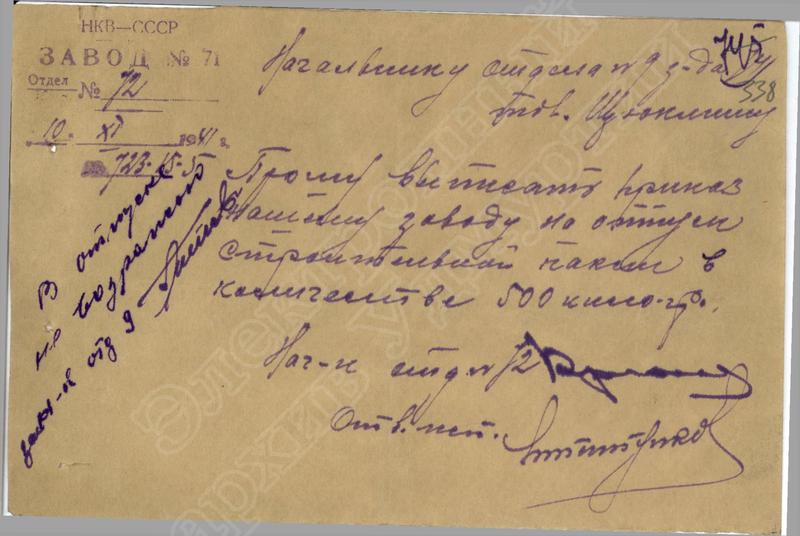 НКВ—СССР
ЗАВОД № 71
Отдел № 72
10. XI 1941 г.
723-15-5
338
Начальнику отдела № 9 з-да 71
тов.
Прошу выписать приказ
нашему заводу на отпуск
строительной пакли в
количестве 500 кило-гр.
Нач-к отд № 72
Отв. исп.
В отпуске
не возражаю
отд 9
Электронный
архив Удмуртии